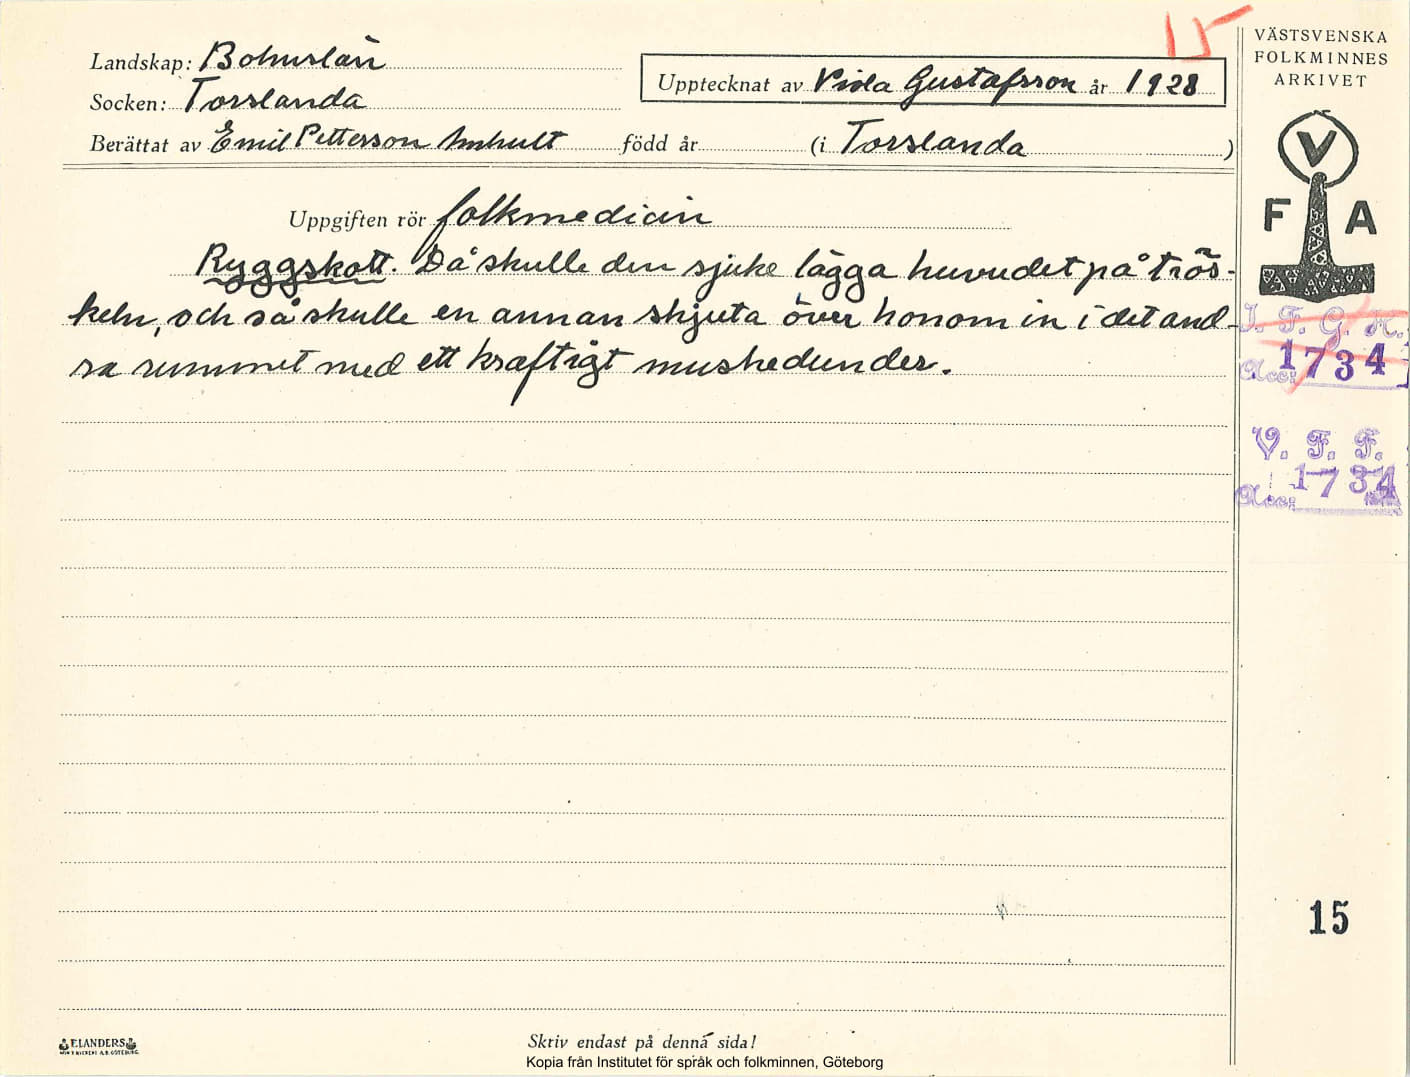 15
VÄSTSVENSKA
FOLKMINNES
ARKIVET
Landskap: Bohuslän
Upptecknat av Viola Gustafsson år 1928
Socken: Torslanda
Berättat av Emil Petterson Amhult född år (i Torslanda)
V
F A
Uppgiften rör folkmedicin
Ryggskott. Då skulle den sjuke lägga huvudet på trös-
keln, och så skulle en annan skjuta över honom in i det and-
ra rummet med ett kraftigt muskedunder.
I. F. G. H.
Acc: 1734
V. F. F.
Acc: 1734
15
ELANDERS
Skriv endast på denna sida!
Kopia från Institutet för språk och folkminnen, Göteborg